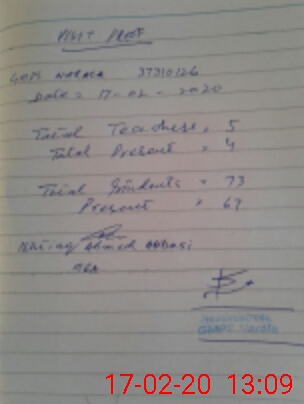 VISIT PROOF
GMPS Narala 37310126
Date = 17-02-2020
Total Teachers = 5
Total Present = 4
Total Students = 73
Present = 67
Ahmed Abbasi
GMPS Narala
17-02-20 13:09